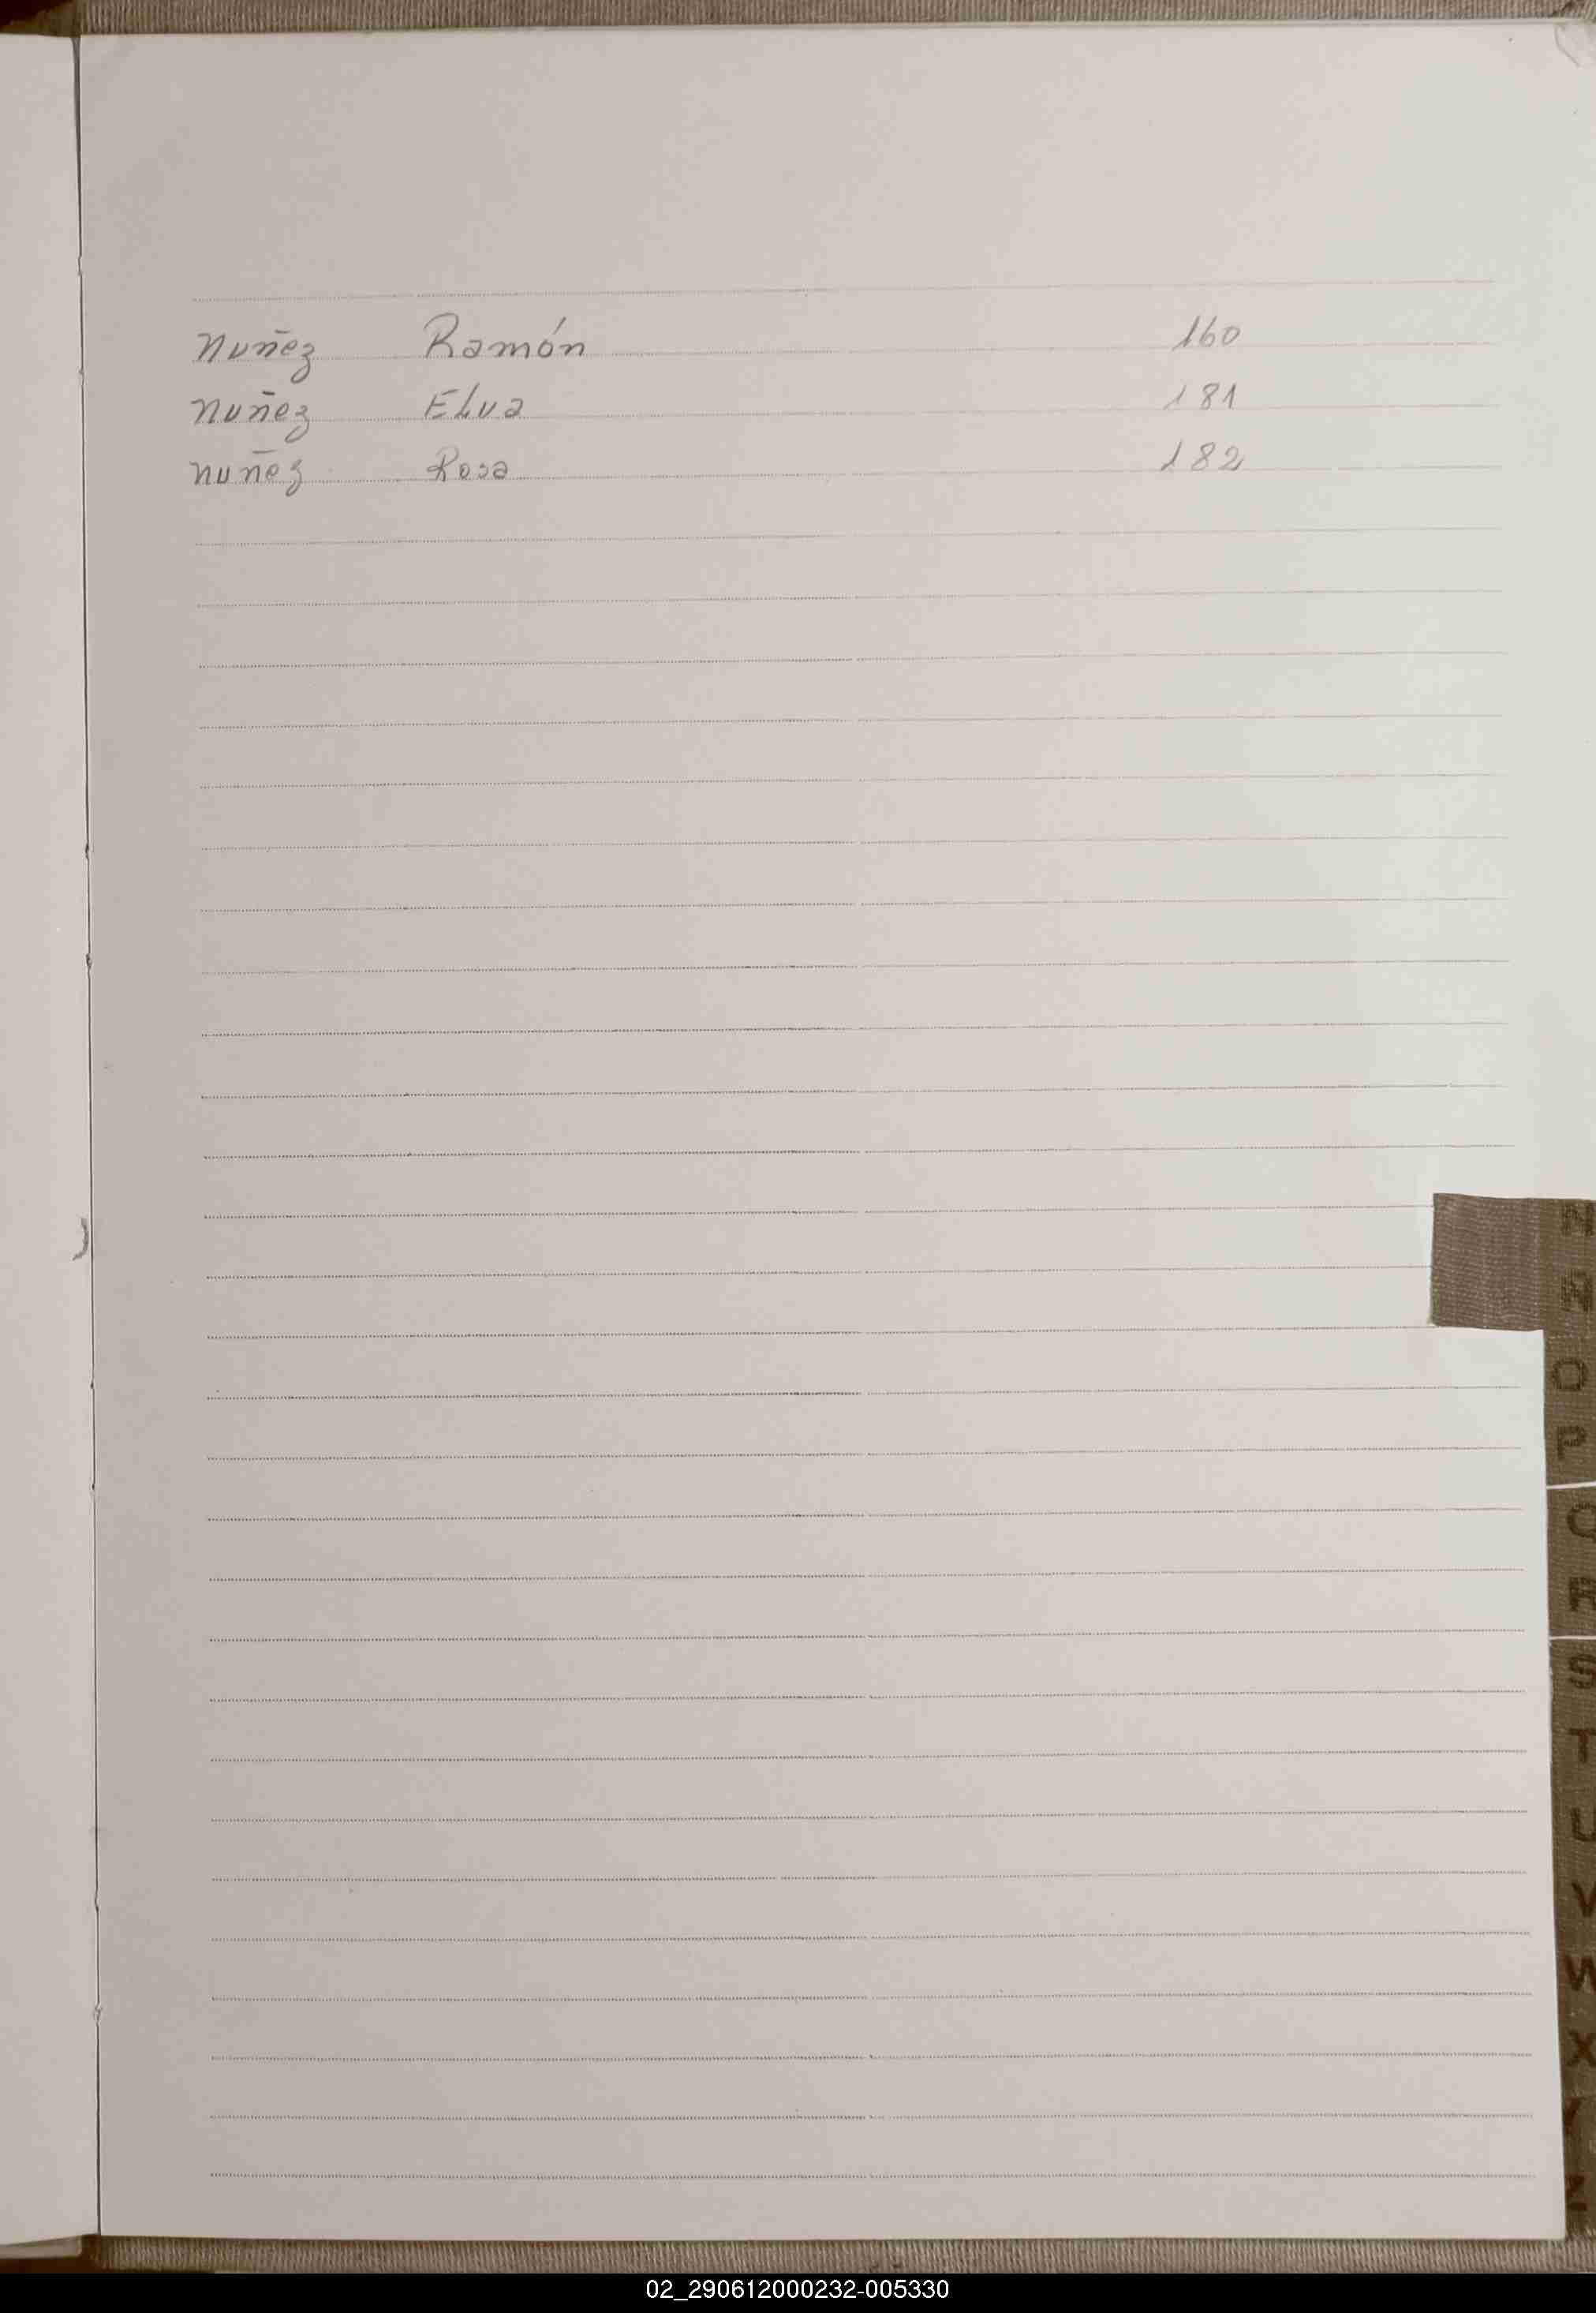 Nuñez Ramón 160
Nuñez Elva 181
Nuñez Rosa 182
N
Ñ
O
P
Q
R
S
T
U
V
W
X
Y
Z
02_290612000232-005330